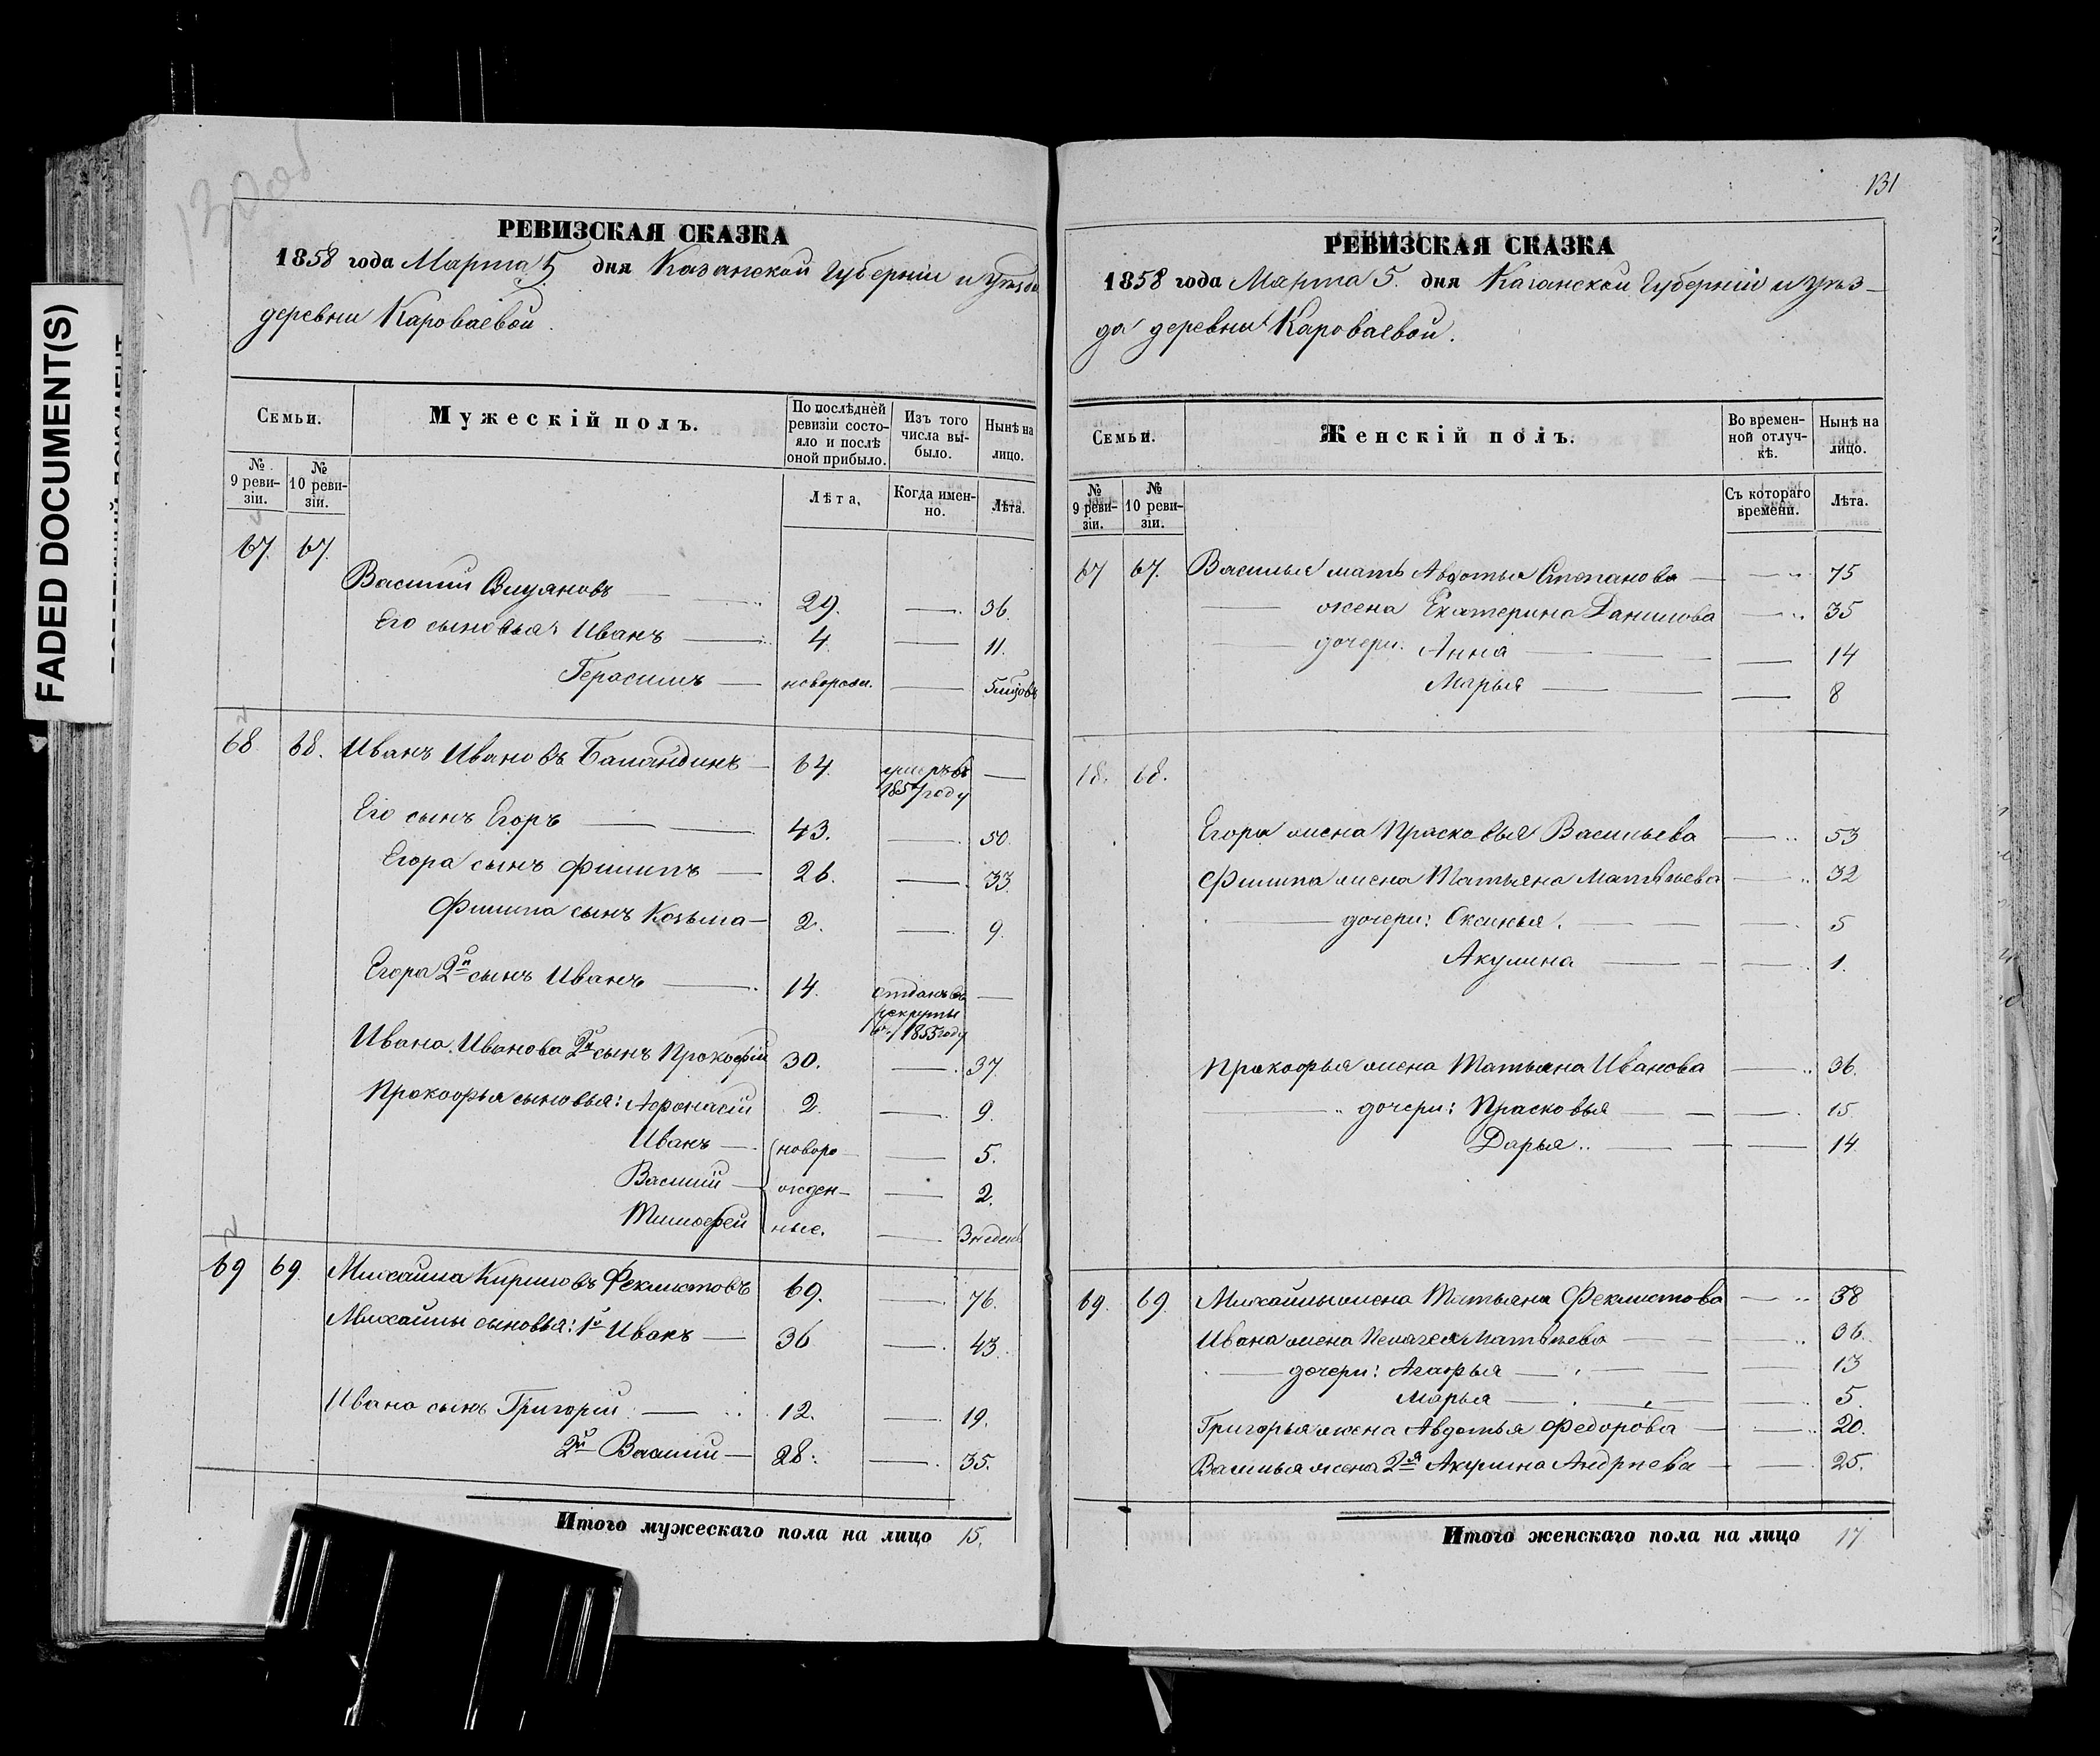 FADED DOCUMENT(S)
130об
РЕВИЗСКАЯ СКАЗКА
1858 года Марта 5 дня Казанской Губерніи и Уѣзда
деревни Караваевой.
Семьи.
Мужескій полъ.
По послѣдней ревизіи состояло и послѣ оной прибыло.
Изъ того числа выбыло.
Нынѣ на лицо.
№ 9 ревизіи.
№ 10 ревизіи.
Лѣта,
Когда именно.
Лѣта.
67. 67.
Василій — 29. — 36.
Его сыновья: Иванъ — 4 — 11.
Герасимъ — новорож. — 5 мѣсяцовъ
68 68. Иванъ Ивановъ Баландинъ — 64. умеръ въ 1857 году —
Его сынъ Егоръ — 43. — 50.
Егора сынъ Филипъ — 26. — 33.
Филипа сынъ Козьма — 2. — 9.
Егора 2й сынъ Иванъ — 14. отданъ въ рекруты въ 1855 году —
Ивана Иванова 2й сынъ Прокофій 30. — 37
Прокофья сыновья: Афонасій 2. — 9.
Иванъ — новоро- — 5.
Василій — жден- — 2.
Тимофей ные. — 3 недель
69 69. Михайла Кириловъ Феклистовъ 69. — 76.
Михайлы сыновья: 1й Иванъ — 36 — 43.
Ивана сынъ Григорій — 12. — 19.
2й Василій — 28. — 35.
Итого мужескаго пола на лицо 15.
131
РЕВИЗСКАЯ СКАЗКА
1858 года Марта 5. дня Казанской Губерніи и Уѣз-
да деревни Караваевой.
Семьи.
Женскій полъ.
Во временной отлучкѣ.
Нынѣ на лицо.
№ 9 ревизіи.
№ 10 ревизіи.
Съ котораго времени.
Лѣта.
67 67. Василья мать Авдотья Степанова — 75
— жена Екатерина Данилова — 35
— дочери: Анна — 14
Марья — 8
68. 68.
Егора жена Прасковья Васильева — 53
Филипа жена Татьяна Матвѣева — 32
— дочери: Оксинья. — 5
Акулина — 1.
Прокофья жена Татьяна Иванова — 36.
— дочери: Прасковья — 15
Дарья — 14
69. 69. Михайлы жена Татьяна Феклистова — 38
Ивана жена Пелагея Матвѣева — 36.
— дочери: Агафья — 13
Марья — 5.
Григорья жена Авдотья Федорова — 20.
Василья жена 2я Акулина Андреева — 25.
Итого женскаго пола на лицо 17